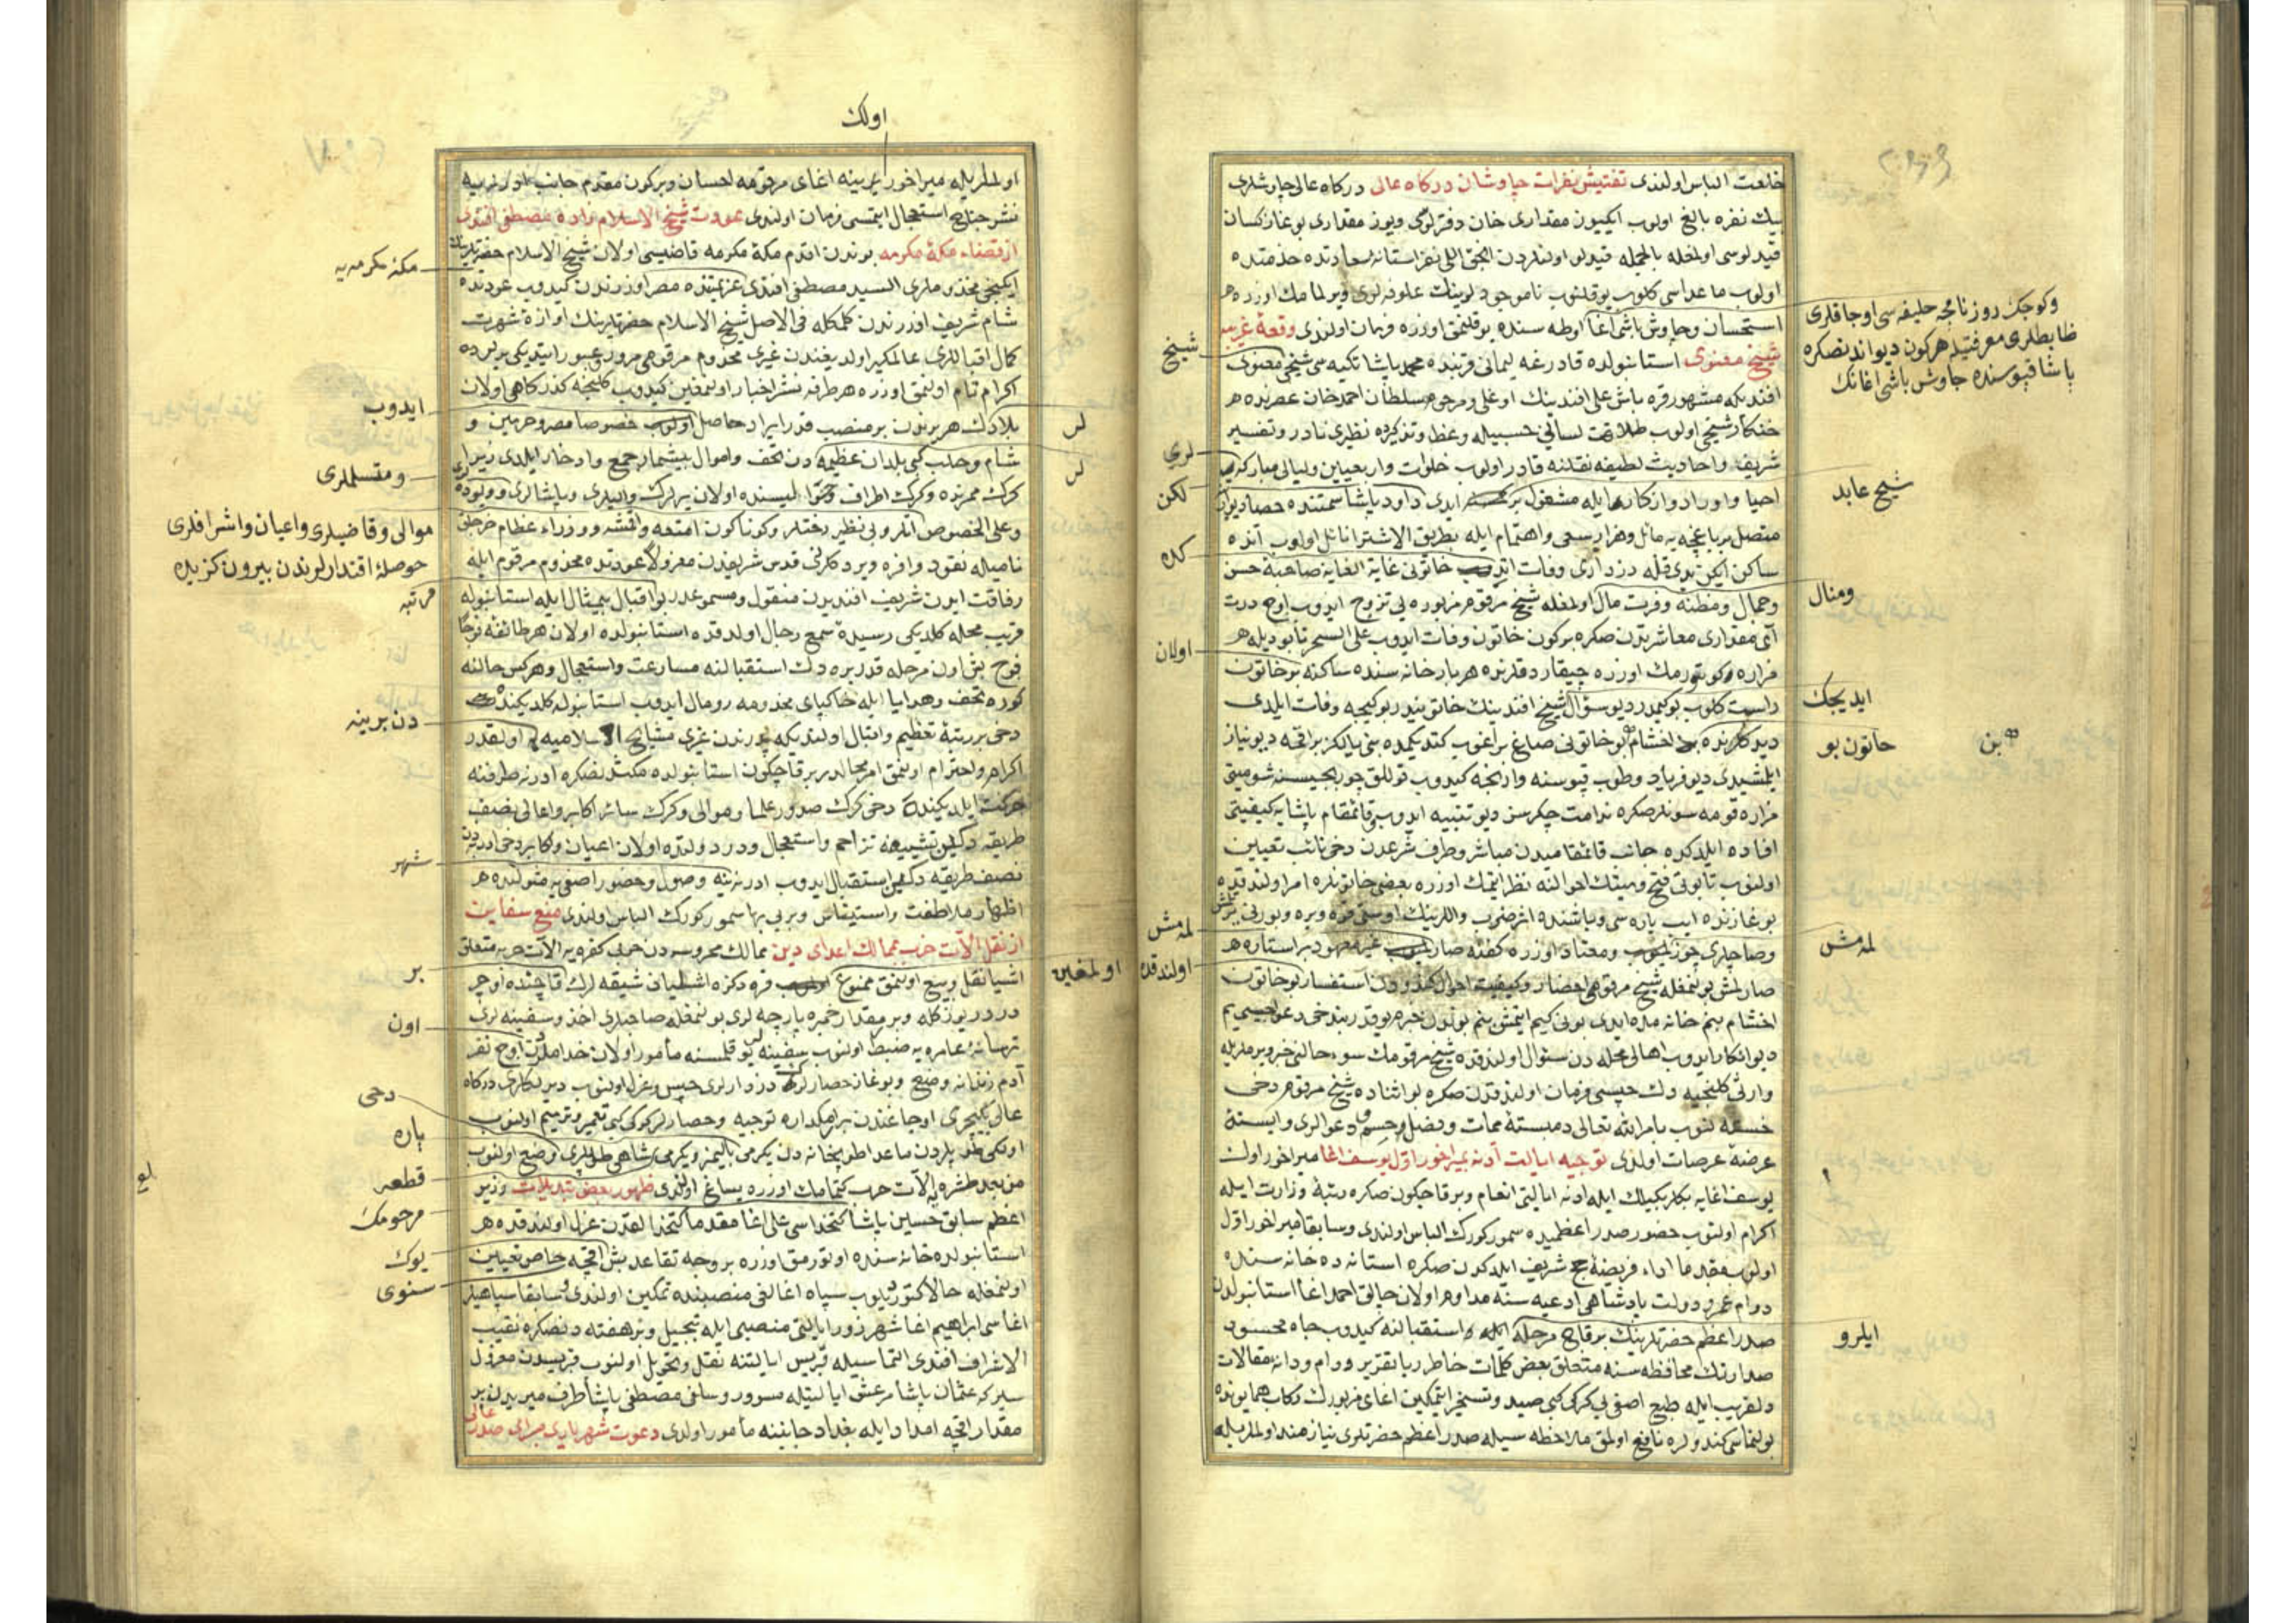 خلعت الباس اولندی تفتیش نفرات چاوشان درکاه عالی درکاه عالی چاوشلری
بیك نفره بالغ اولوب ایکییوز مقداری خان دفترلوکی ویوز مقداری بوغازکسان
قیدلوسی اولمغله بالجمله قیدلو اولنلردن انجق اللی نفر استانۀ سعادتده خدمتده
اولوب ماعداسی کلوب یوقلنوب ناموجودلرینك علوفه لری ویرلمامك اوزره
استحسان وچاوش باشی اغا اوطه سنده یوقلنمق اوزره فرمان اولندی وقعۀ غریبه
شیخ معنوی استانبولده قادرغه لیمانی قربنده محمد پاشا تکیه سی شیخی معنوی
افندیکه مشهور قره باش علی افندینك اوغلی ومرحوم سلطان احمد خان عصرنده
خنکار شیخی اولوب طلاقت لسانی حسبیله وعظ وتذکیرده نظیری نادر وتفسیر
شریف واحادیث لطیفه نقلنه قادر اولوب خلوات واربعیین ولیالی مبارکه یی
احیا واوراد واذکار ایله مشغول ایدی داود پاشا سمتنده حصار دیواری
متصل بر باغچه یه مائل وهزار سعی واهتمام ایله بطریق الاشترا نائل اولوب آنده
ساکن ایکن یدی قله دزداری وفات ایدوب خاتونی غایة الغایه صاحبۀ حسن
وجمال ومظنه وفرت مال اولمغله شیخ مرقوم مزبوره یی تزوج ایدوب اوچ درت
آی مقداری معاشرتدن صکره برکون خاتون وفات ایدوب علی السحر تابودیله
مزاره کوتورمك اوزره چیقاردقلرنده هربار خانه سنده ساکنه بر خاتون
راست کلوب بو کیمدر دیو سؤال شیخ افندینك خاتونیدر بو کیجه وفات ایلدی
دیدکلرنده اخشام بو خاتونی صاغ براغوب کتدیکمده بنی یالکز براقمه دیو نیاز
ایلمشیدی دیو فریاد وطوب قپوسنه وارنجه کیدوب قوللق چوربجیسنه شو میتی
مزاره قومه سونلر صکره ندامت چکرسن دیو تنبیه ایدوب قائمقام پاشایه کیفیتی
افاده ایلدکده جانب قائمقامیدن مباشر وطرف شرعدن دخی نائب تعیین
اولنوب تابوتی فتح ومیتك احوالنه نظر ایتمك اوزره بعضی خاتونلره امر اولندقده
بوغازنده ایپ یاره سی وباشنده اثر ضرب واللرینك اوستی قره وبره وبورنی
وصاچلری چوزلمیوب ومعتاد اوزره کفنه صارلمیوب غیر معهود بر استاره
صارلمش بولنمغله شیخ مرقومی احضار وکیفیت احوال کندودن استفسار بو خاتون
اخشام بنم خانه مده ایدی بونی کیم ایتمش بنم بوندن خبرم یوقدر بندخی دعواجییم
دیو انکار ایدوب اهالی محله دن سؤال اولندقده شیخ مرقومك سوء حالنی خبر ویرملریله
وارثی کلنجیه دك حبسی فرمان اولندقدن صکره بو اثناده شیخ مرقوم دخی
خسته لنوب بامر الله تعالی دمبستۀ ممات وفصل وحسم دعوالری وابستۀ
عرضۀ عرصات اولدی توجیه ایالت آدنه بمیراخور اول یوسف اغا میراخور اول
یوسف اغایه بکلربکیلك ایله ادنه ایالتی انعام وبر قاچ کون صکره رتبۀ وزارت ایله
اکرام اولنوب حضور صدر اعظمیده سمور کورك الباس اولندی وسابقا میراخور اول
اولوب مقدما اداء فریضۀ حج شریف ایلدکدن صکره استانه ده خانه سنده
دوام عمر ودولت پادشاهی ادعیه سنه مداوم اولان چالق احمد اغا استانبولدن
صدر اعظم حضرتلرینك برقاچ مرحله استقبالنه کیدوب جاه محسود
صدارتك محافظه سنه متعلق بعض کلمات خاطر ربا بتقریر ورام ودانۀ مقالات
دلفریب ایله طبع اصفی یی کرکی کبی صید وتسخیر ایتمکین اغای مزبورك رکاب همایونده
بولنماسی کندولره نافع اولمق ملاحظه سیله صدر اعظم حضرتلری نیازمند اولملریله
وکوچك روزنامچه خلیفه سی اوجاقلری
ضابطلری معرفتیله هرکون دیواندنصکره
پاشا قپوسنده چاوش باشی اغانك
شیخ
لری
شیخ عابد
لکن
کده
ومنال
اولان
ایدیجك
خاتون بو
بن
لمه مش
لمه مش
اولندقده
ایلرو
اولك
اولملریله میراخور یرینه اغای مرقومه احسان وبرکون مقدم جانب ادرنه یه
نشر جناح استعجال ایتمسی فرمان اولندی عودت شیخ الاسلام زاده مصطفی افندی
از قضاء مکۀ مکرمه بوندن اقدم مکۀ مکرمه قاضیسی اولان شیخ الاسلام حضرتلرینك
ایکنجی مخدوملری السید مصطفی افندی عزیمتنده مصر اوزرندن کیدوب عودتده
شام شریف اوزرندن کلمکله فی الاصل شیخ الاسلام حضرتلرینك اوازۀ شهرت
کمال اقباللری عالمکیر اولدیغندن غیری مخدوم مرقومی مرور وعبور ایتدیکی یرلرده
اکرام تام اولنمق اوزره هر طرفه نشر اخبار اولنمغین کیدوب کلنجه کذرکاهی اولان
بلادك هر برندن بر منصب قدر ایراد حاصل اولوب خصوصا مصر وحرمین و
شام وحلب کبی بلدان عظیمه دن تحف واموال بیشمار جمع وادخار ایلدی زیرا
کرك ممرنده وکرك اطراف وحوالیسنده اولان بکلربکی والیلری وپاشالری وویوده
وعلی الخصوص اتلر وبی نظیر رختلر وکوناکون امتعه واقمشه ووزراء عظام
نامیله نقود وافره ویردکلرنی قدس شریفدن معزولا عودتده مخدوم مرقوم ایله
رفاقت ایدن شریف افندیدن منقول ومسموعدر بو اقبال بیمثال ایله استانبوله
قریب محله کلدیکی رسیدۀ سمع رجال اولدقده استانبولده اولان هر طائفه فوجا
فوج بش اون مرحله قدر یره دك استقبالنه مسارعت واستعجال وهرکس حالنه
کوره تحف وهدایا ایله خاکپای مخدومه رومال ایدوب استانبوله کلدیکنده
دخی بر رتبۀ تعظیم واقبال اولندیکه پدرندن غیری مشایخ اسلامیه اولقدر
اکرام واحترام اولنمق امر محالدر برقاچ کون استانبولده مکثدنصکره ادرنه طرفنه
حرکت ایلدیکنده دخی کرك صدور علما وموالی وکرك سائر اکابر واعالی نصف
طریقه دکین تشییعنه تزاحم واستعجال ودر دولتده اولان اعیان وکابر دخی ادرنه دن
نصف طریقه دکین استقبال ایدوب ادرنه یه وصول وحضور اصفی یه مثولنده
اظهار ملاطفت واستیناس وبر بی بها سمور کورك الباس اولندی منع سفاین
از نقل الآت حرب بممالك اعدای دین ممالك محروسه دن حربی کفره یه الآت حربه متعلق
اشیا نقل وبیع اولنمق ممنوع اولوب قره دکزه اشطیان شیقه لرك قاچنده اوچر
دردر یوز کله وبر مقدار خمبره پارچه لری بولنمغله صاحبلری اخذ وسفینه لری
ترسانۀ عامره یه ضبط اولنوب سفینه یوقلمسنه مأمور اولان خداملردن اوچ نفر
آدم زندانه وضع وبوغاز حصارلری دزدارلری حبس وعزل اولنوب دیزدارلری درکاه
عالی یکیچری اوجاغندن بر امکداره توجیه وحصارلر کرکی کبی تعمیر وترمیم اولنوب
اولکی طوپلردن ماعدا طوپخانه دن یکرمی بالیمز ویکرمی شاهی طوپلری وضع اولنوب
من بعد طشره یه الآت حرب کتمامك اوزره یساغ اولندی ظهور بعض تبدیلات وزیر
اعظم سابق حسین پاشا کتخداسی علی اغا مقدما کتخدالقدن عزل اولندقده
استانبولده خانه سنده اوتورمق اوزره بر وجه تقاعد بش اقچه خاص تعیین
اولنمغله حالا کتوریلوب سپاه اغالغی منصبنده تمکین اولندی وسابقا سپاهیلر
اغاسی ابراهیم اغا شهرزور ایالتی منصبی ایله تبجیل وبر هفته دنصکره نقیب
الاشراف افندی التماسیله قبریس ایالتنه نقل وتحویل اولنوب قبریسدن معزول
سیرکه عثمان پاشا مرعش ایالتیله مسرور وسلفی مصطفی پاشا طرف میریدن بر
مقدار اقچه امداد ایله بغداد جانبنه مأمور اولدی دعوت شهریاری برای صدر عالی
مکۀ مکرمه یه
ایدوب
لر
لر
ومتسلملری
موالی وقاضیلری واعیان واشرافلری
حوصلۀ اقتدارلرندن بیرون کزیده
مرتبه
دن برینه
شهر
بر
اولمغین
اون
دخی
پاره
قطعه
مرحومك
یوك
سنوی